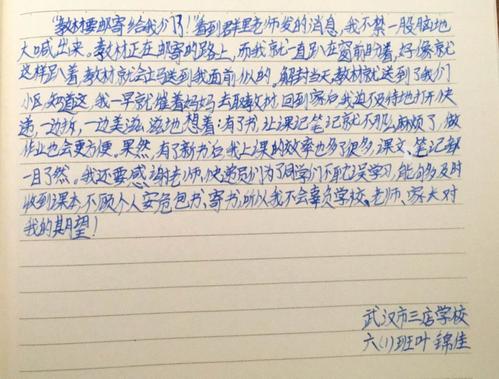 “教材要邮寄给我们了!”看到群里老师发的消息,我不禁一股脑地
大喊出来。教材正在邮寄的路上,而我就一直趴在窗前盼着,好像就
这样趴着教材就会立马送到我面前似的。解封当天,教材就送到了我们
小区,知道这,我一早就催着妈妈去取教材,回到家后我迫不及待地打开快
递,一边拆,一边美滋滋地想着:有了书,上课记笔记就不那么麻烦了,做
作业也会更方便。果然,有了新书后,我上课的效率也多了很多,课文、笔记都
一目了然。我还要感谢老师,快递员们为了同学们不耽误学习,能够及时
收到课本,不顾个人安危包书、寄书,所以我不会辜负学校、老师、家长对
我的期望!
武汉市三店学校
六(1)班叶锦佳